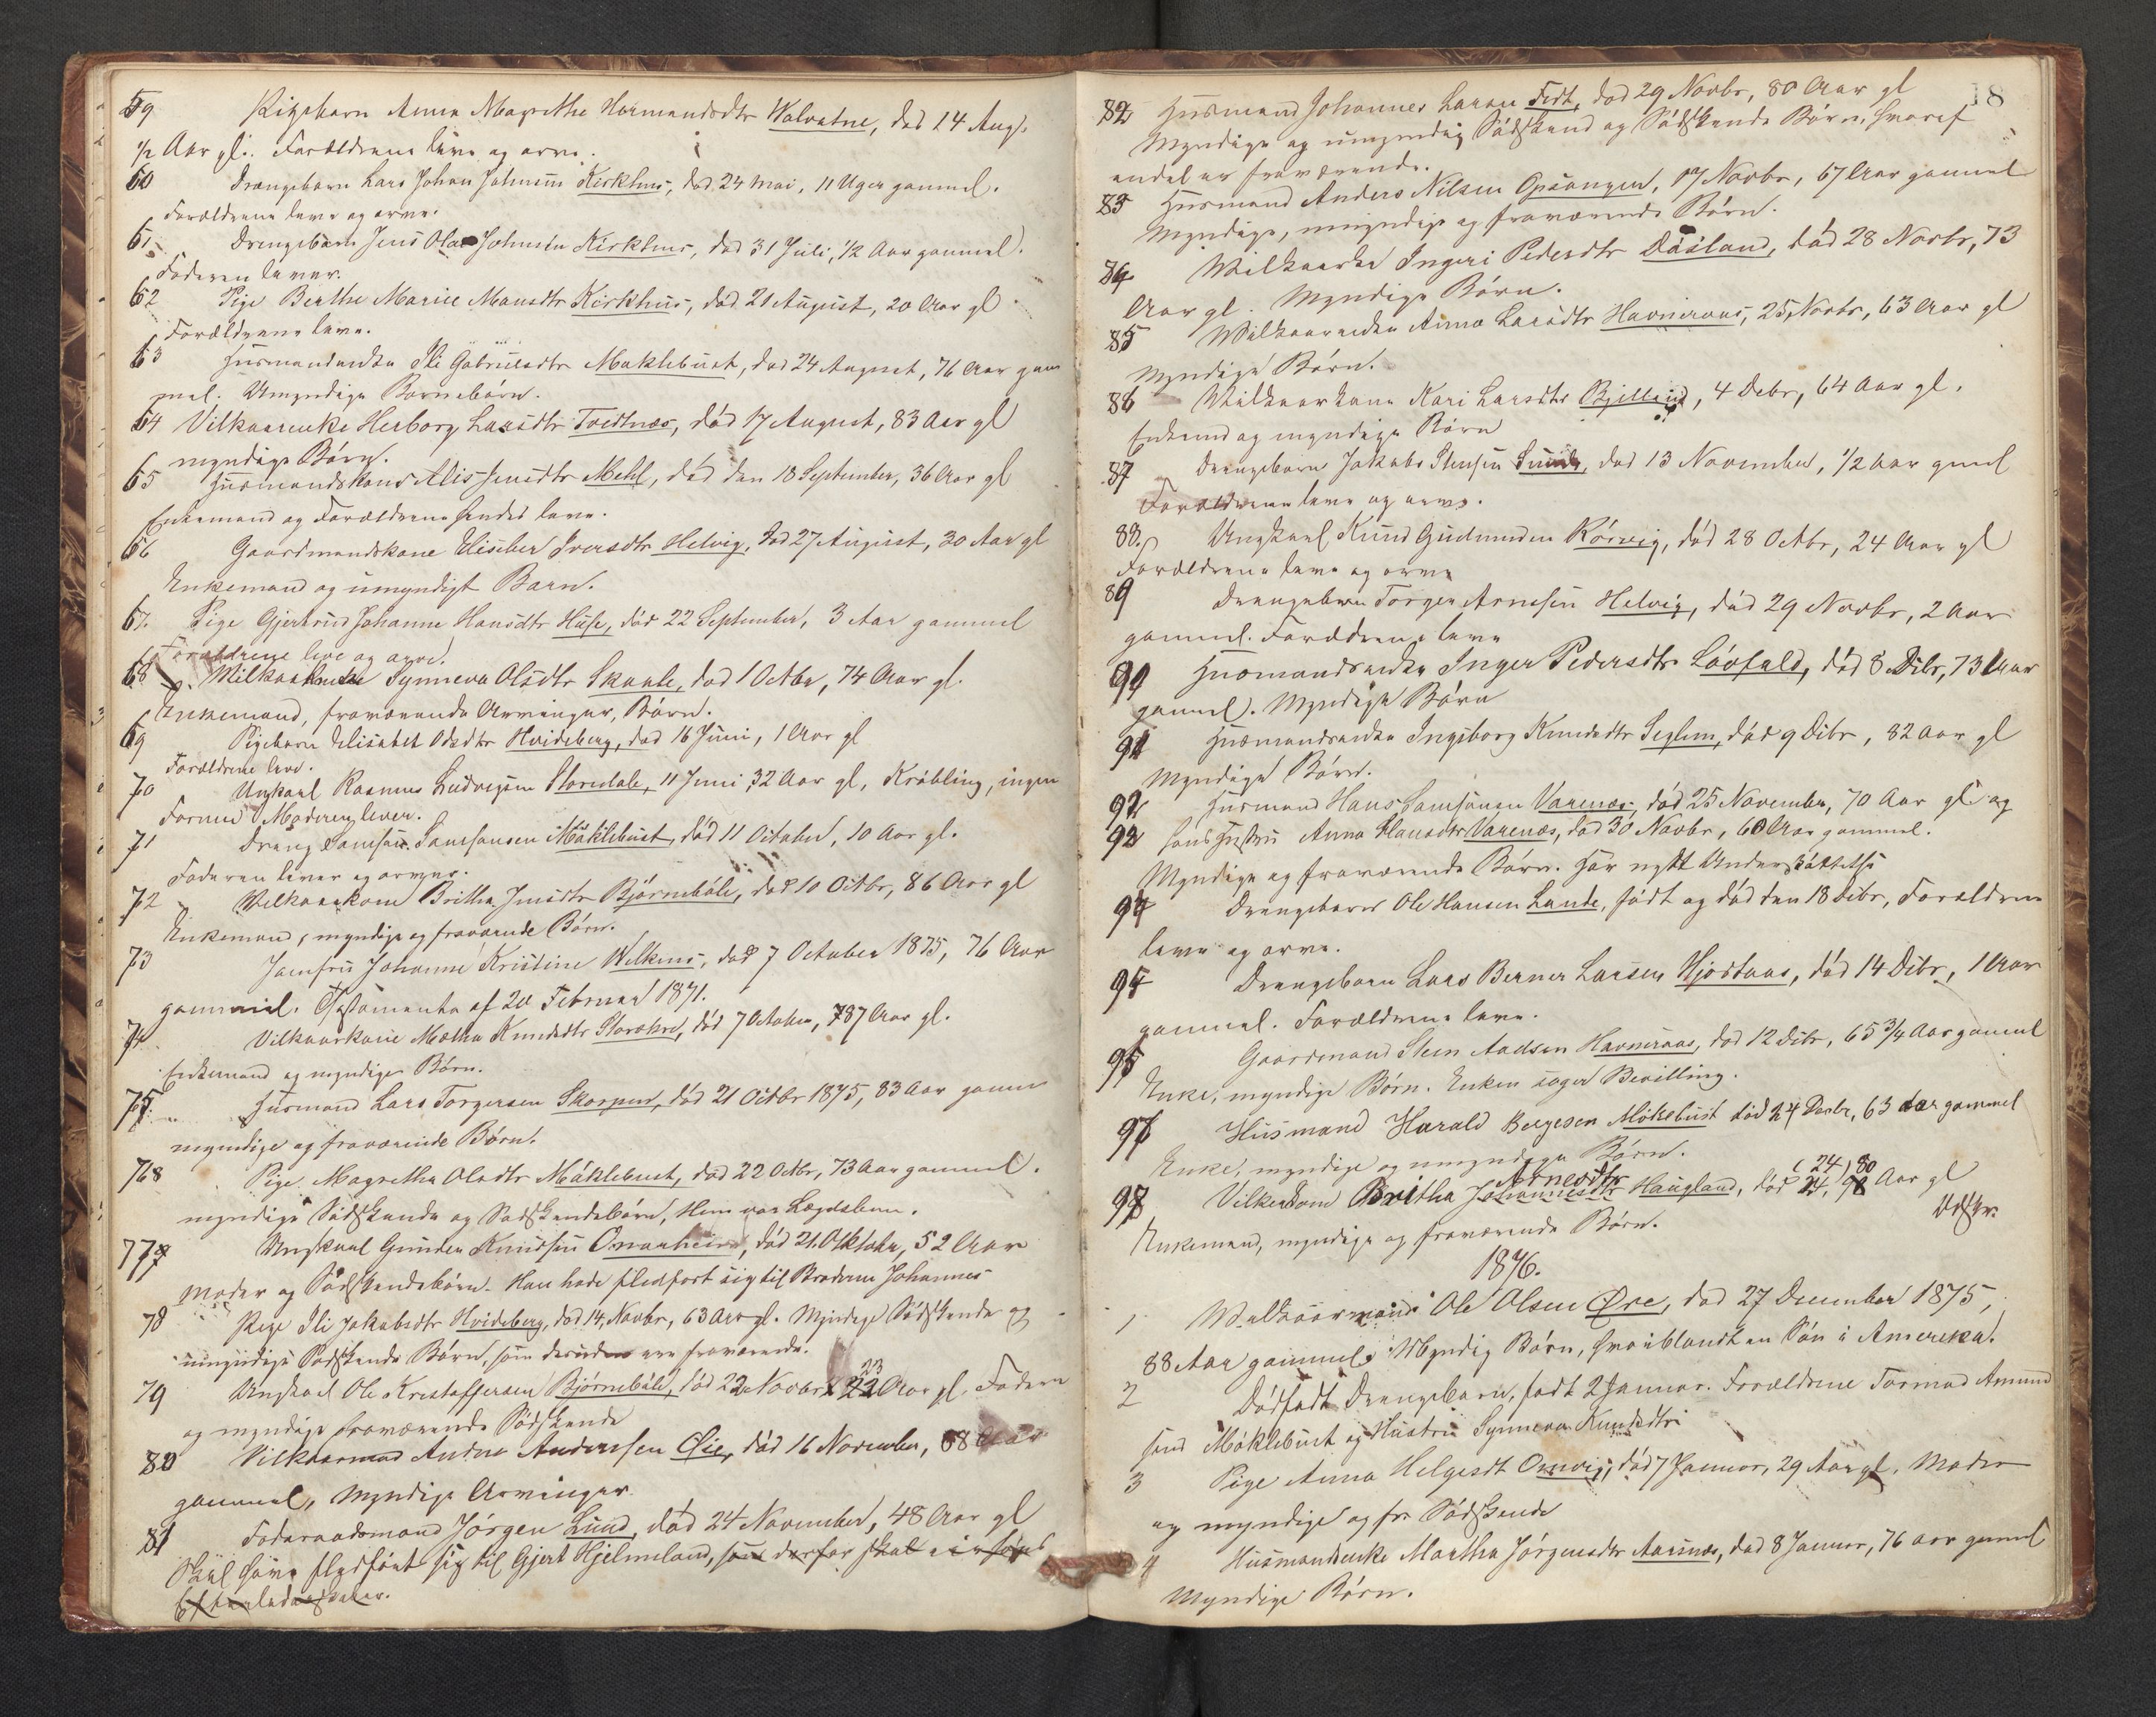 59 Pigebarn Anna Magrethe Hermandsdtr Walvatne, død 14 Aug.
1/2 Aar gl. Forældrene leve og arve.
60 Drengebarn Lars Johan Johnsen Kirkhus, død 24 Mai, 11 Uger gammel.
Forældrene leve og arve.
61 Drengebarn Jens Olai Johnsen Kirkhus, død 31 Juli, 1/2 Aar gammel.
Faderen lever.
62 Pige Berthe Marie Mansdtr Kirkhus, død 21 August, 20 Aar gl
Forældrene leve.
63 Husmandsenke Ili Gabrielsdtr Møklebust, død 24 August, 76 Aar gam
mel. Umyndige Børnebørn.
64 Vilkaarenke Herborg Larsdtr Tvedtnæs, død 17 August, 83 Aar gl
myndige Børn.
65 Husmandskone Alis Jensdtr Mehl, død den 18 September, 36 Aar gl
Enkemand og Forældrene hendes leve.
66 Gaardmandskone Eliseber Iversdtr Helvig, død 27 August, 30 Aar gl
Enkemand og umyndigt Barn.
67. Pige Gjertrud Johanne Hansdtr Huse, død 22 September, 3 Aar gammel
Forældrene leve og arve.
68 Vilkaar Synneva Olsdtr Skaale, død 1 Octbr, 74 Aar gl.
Enkemand, fraværende Arvinger, Børn.
69 Pigebarn Elisabet Odsdtr Hvideberg, død 16 Juni, 1 Aar gl
Forældrene leve.
70 Ungkarl Rasmus Ludvigsen Storedale, 11 Juni, 32 Aar gl, Krøbling, ingen
Formue Moderen lever.
71 Dreng Samson Samsonsen Møklebust, død 11 October, 10 Aar gl.
Faderen lever og arver.
72 Vilkaarkone Britha Jensdtr Bjørnebøle, død 10 Octbr, 86 Aar gl
Enkemand, myndige og fraværende Børn.
73 Jomfru Johanne Kristine Wilkens, død 7 October 1875, 76 Aar
gammel. Testamente af 20 Februar 1871.
74 Vilkaarkone Metha Knudsdtr Storøkre, død 7 October, 87 Aar gl.
Enkemand og myndige Børn.
75. Husmand Lars Torgersen Skorpen, død 21 Octbr 1875, 83 Aar gamm
myndige og fraværende Børn.
76 Pige Magretha Olsdtr Møklebust, død 22 Octbr, 73 Aar gammel.
myndige Sødskende og Sødskendebørn, Hun var Lægdslem.
77 Ungkarl Gunder Knudsen Onarheim, død 21. Oktober, 52 Aar
Moder og Sødskendebørn. Han hade fledført sig til Broderen Johannes
78 Pige Ili Jakobsdtr Hvideberg, død 14 Novbr, 63 Aar gl. Myndige Sødskende og
umyndige Sødskende Børn, som desuden ere fraværende.
79 Ungkarl Ole Kristoffersen Bjørnebøle, død 22 Novbr 23 Aar gl. Fadern
og myndige fraværende Sødskende
80 Vilkaarmand Andrus Anderssen Øie, død 16 November, 68 Aar
gammel, myndige Arvinger.
81 Foderaadsmand Jørgen Lund, død 24 November, 48 Aar gl
Skal have fledført sig til Gjert Hjelmeland, som derfor skal
Efterladenskaber.
18
82 Husmand Johannes Larsen Fedt, død 29 Novbr, 80 Aar gl
Myndige og umyndig Sødskend og Sødskende Børn, hvoraf
endel er fraværende.
83 Husmand Anders Nilsen Opsangen, 17 Novbr, 67 Aar gammel
Myndige, umyndige og fraværende Børn.
84 Vilkaarke Ingeri Pedersdtr Døsland, død 28 Novbr, 73
Aar gl. Myndige Børn.
85 Vilkaarenke Anna Larsdtr Havneraas, 25 Novbr, 63 Aar gl
Myndige Børn.
86 Vilkaarkone Kari Larsdtr Bjelland, 4 Debr, 64 Aar gl.
Enkemd og myndige Børn
87 Drengebarn Jakob Stensen Sunde, død 13 November, 1/2 Aar gmel
Forældrene leve og arve.
88. Ungkarl Knud Gudmundsen Rørvig, død 28 Octbr, 24 Aar gl
Forældrene leve og arve
89 Drengebarn Torger Arnesen Helvig, død 29 Novbr, 2 Aar
gammel. Forældrene leve
90 Husmandsenke Inger Pedersdtr Løvfald, død 8 Debr, 73 Aar
gammel. Myndige Børn
91 Husmandsenke Ingeborg Knudsdtr Seglem, død 9 Debr, 82 Aar gl
Myndige Børn.
92 Husmand Hans Samsonsen Varenæs, død 25 November, 70 Aar gl og
93 hans Hustru Anna Hansdtr Varenæs, død 30 Novbr, 60 Aar gammel.
Myndige og fraværende Børn. Har nydt Understøttelse
94 Drengebarn Ole Hansen Lande, født og død den 18 Debr, Forældrene
leve og arve.
95 Drengebarn Lars Berner Larsen Hjortaas, død 14 Debr, 1 Aar
gammel. Forældrene leve.
96 Gaardmand Sten Aadsen Havneraas, død 12 Debr, 65 3/4 Aar gammel
Enke, myndige Børn. Enken søger Bevilling.
97 Husmand Harald Bergesen Møklebust død 24 Decbr, 63 Aar gammel
Enke, myndige og umyndige Børn.
98 Vilkaarkone Britha Johannesdtr Arnesdtr Haugland, død (24) 80 Aar gl
Enkemand, myndige og fraværende Børn.
1876.
1 Vilkaarmand Ole Olsen Øre, død 27 December 1875,
88 Aar gammel. Myndig Børn, hvoriblandt en Søn i Amerika.
2 Dødfødt Drengebarn, født 2 Januar. Forældrene Tormod Amund
send Møklebust og Hustru Synneva Knudsdtr
3 Pige Anna Helgesdt Omvig, død 7 Januar, 29 Aar gl. Moder
og myndige og fr Sødskende
4 Husmandsenke Martha Jørgensdtr Aarsnæs, død 8 Januar, 76 aar gammel
Myndige Børn.